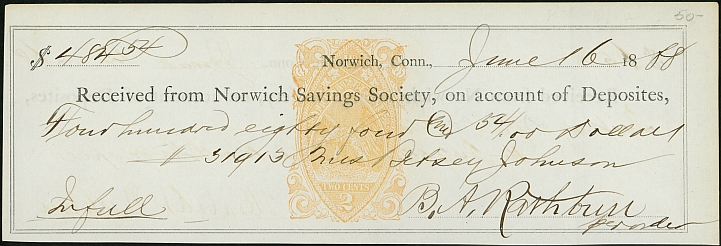 50-
$ 484 54
Norwich, Conn., June 16 1888
Received from Norwich Savings Society, on account of Deposites,
Four hundred eighty four and 54/00 Dollars
# 31913 Miss Betsey Johnson
TWO CENTS
2
In full B. A. Rathbun
per order